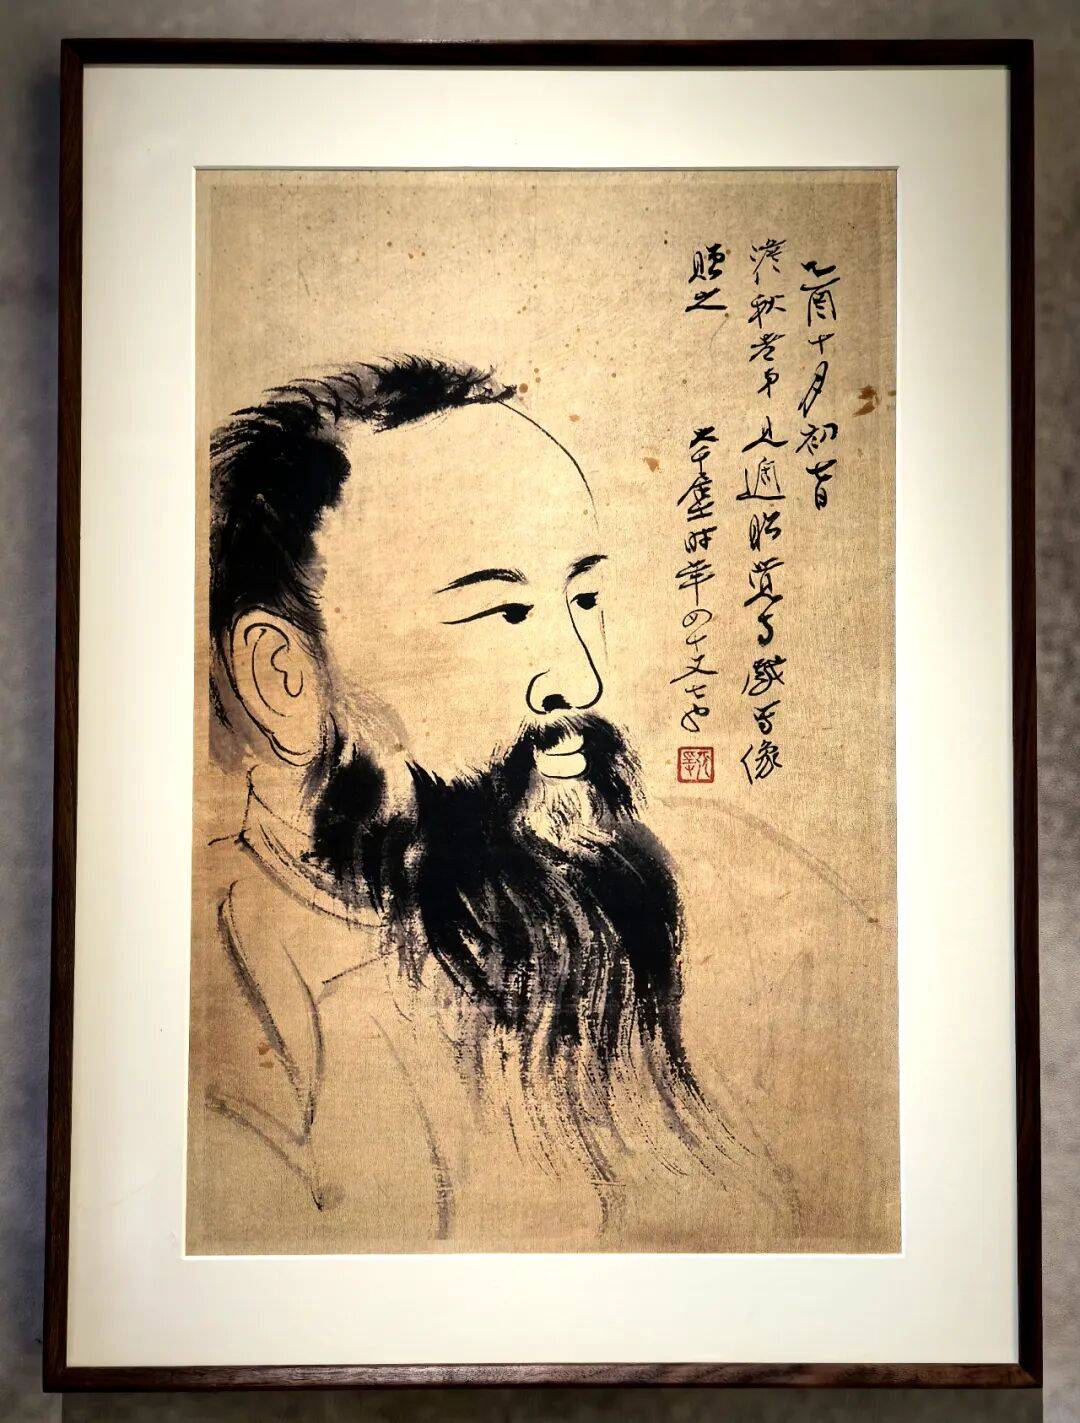 乙酉十月初七日
澹秋老弟見過昭覺寺戲写像
贈之
大千居士时年四十又七也